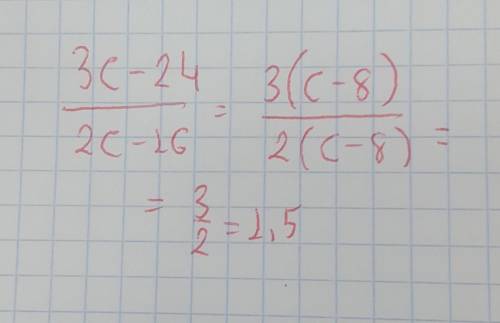 (3c-24)/(2c-16) = (3(c-8))/(2(c-8)) =
= 3/2 = 1,5